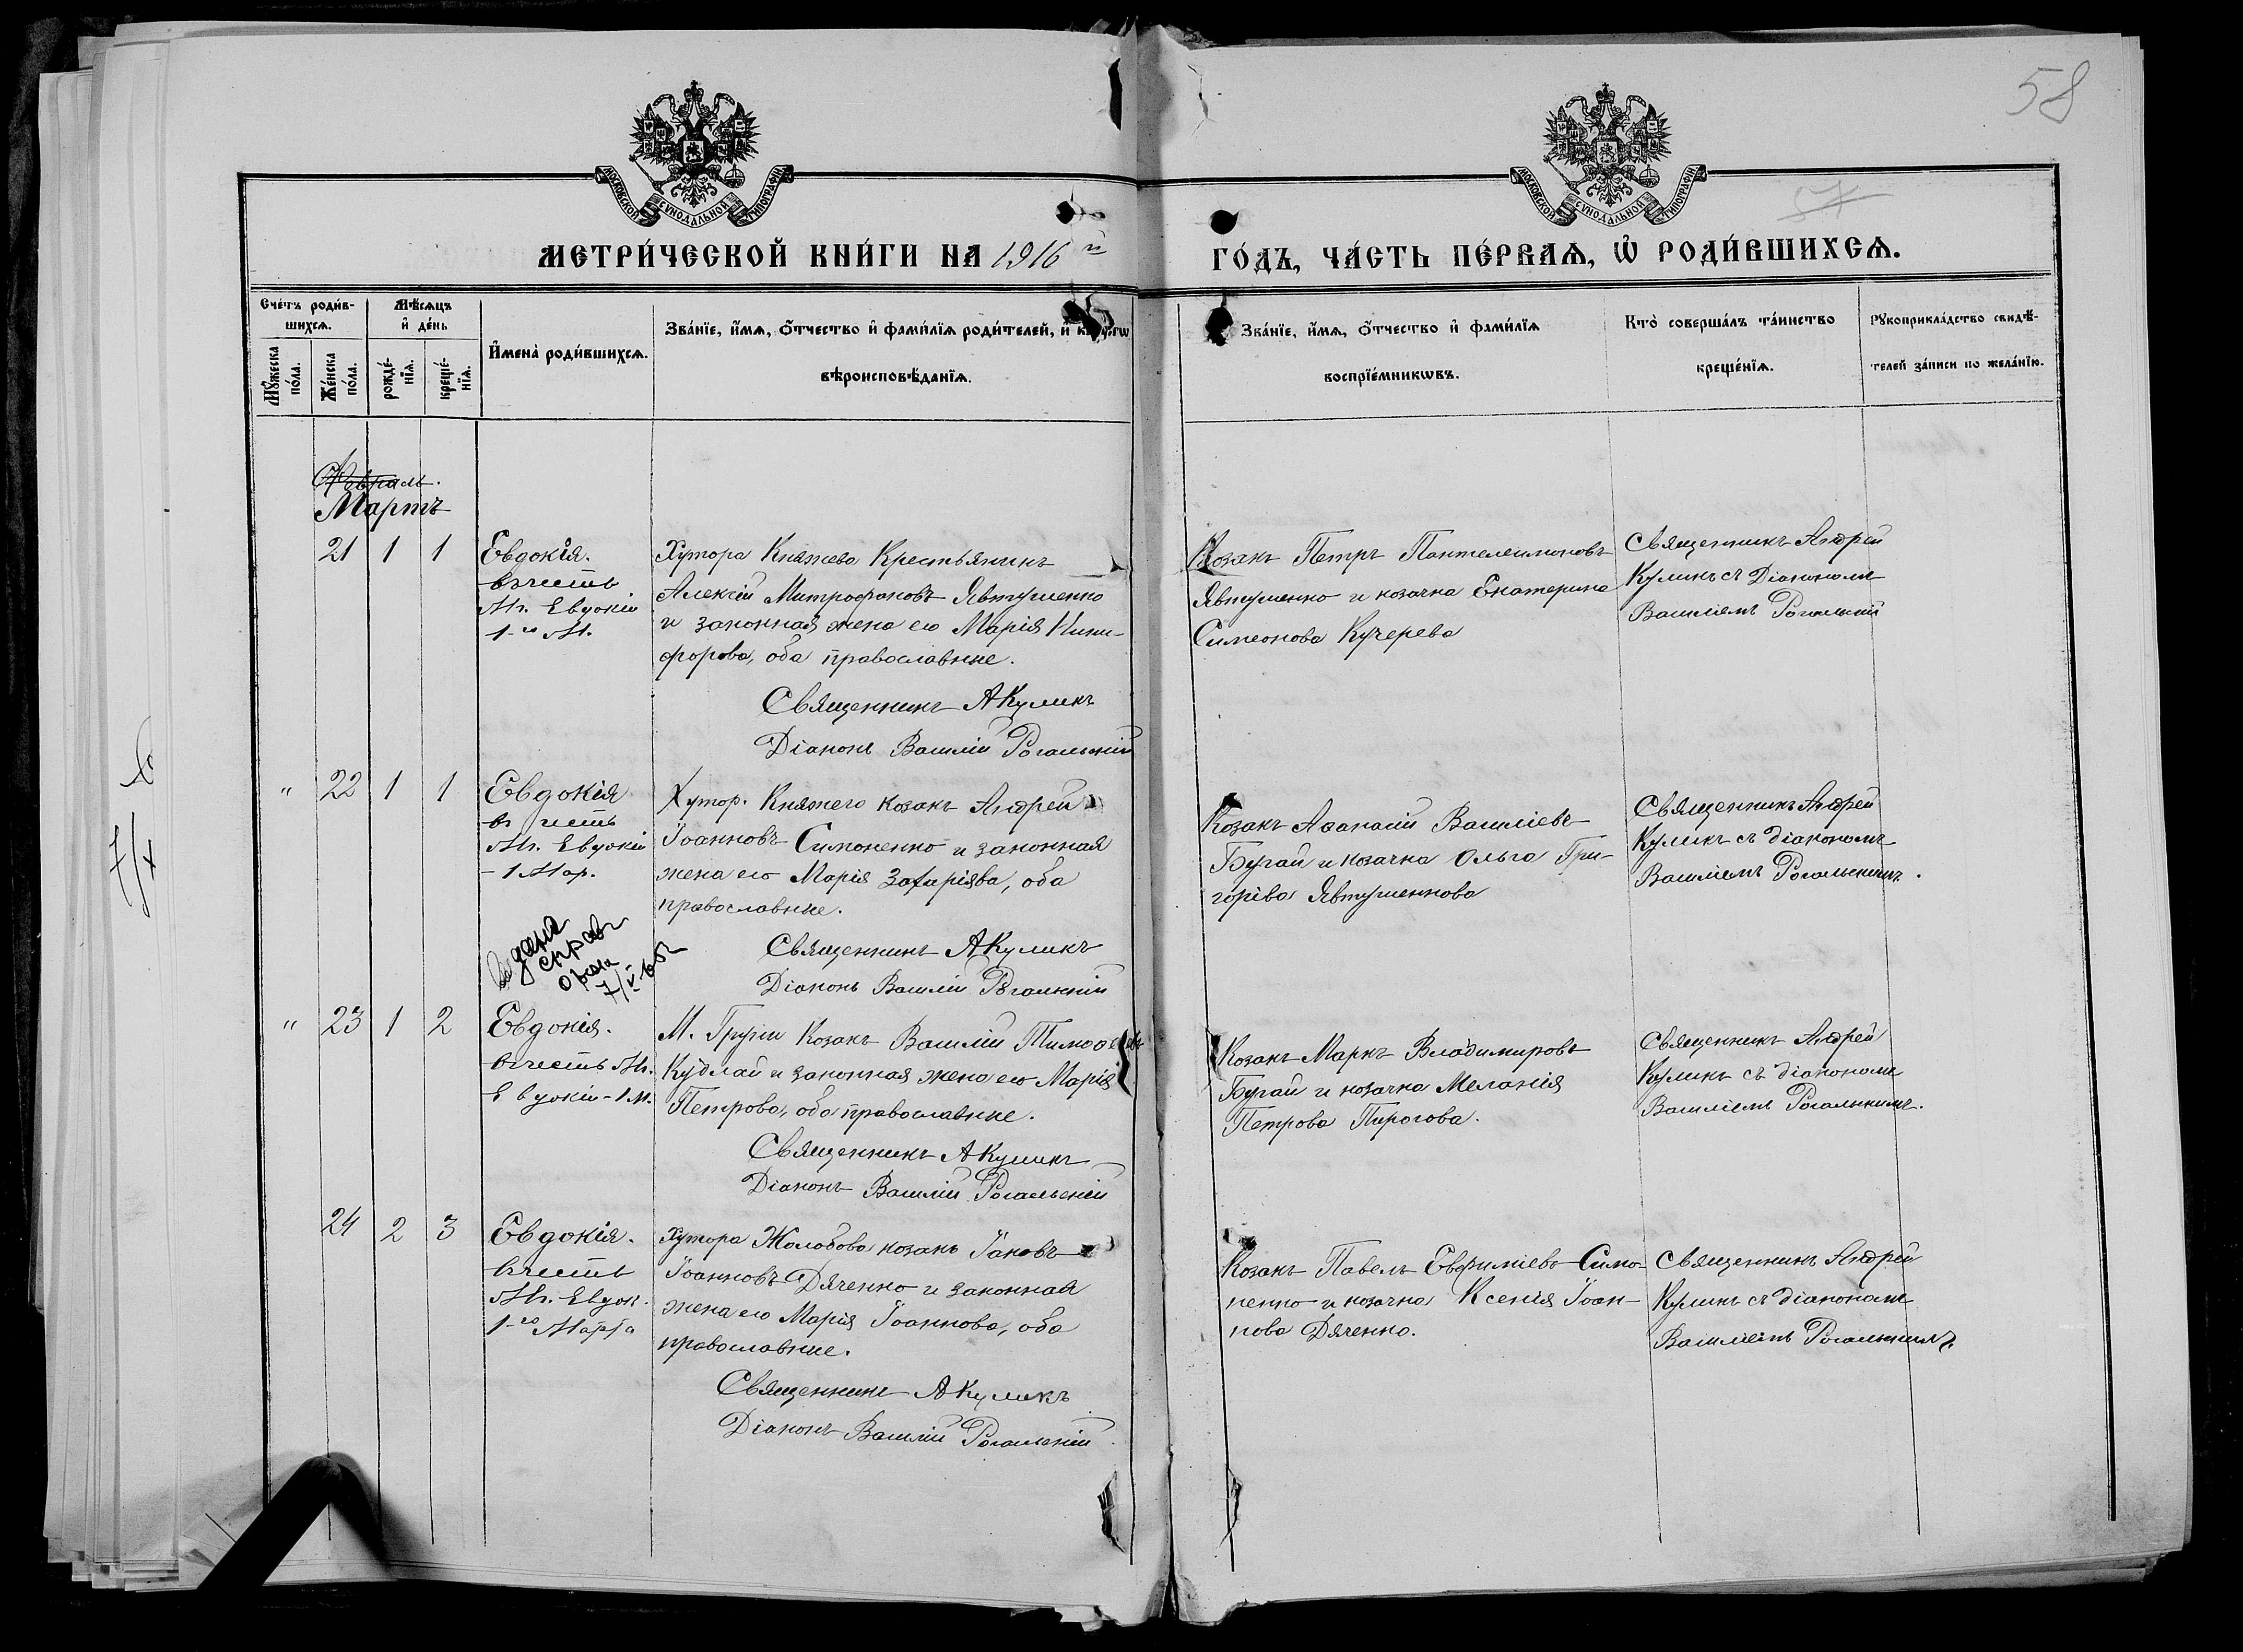 58
57
МОСКОВСКОЙ СѴНОДАЛЬНОЙ ТИПОГРАФІИ
МОСКОВСКОЙ СѴНОДАЛЬНОЙ ТИПОГРАФІИ
МЕТРИ́ЧЕСКОЙ КНИ́ГИ НА 1916 й
ГО́ДЪ, ЧА́СТЬ ПЕ́РВАѦ, Ѡ҆ РОДИ́ВШИХСѦ.
Сче́тъ роди́в-
шихсѧ.
Мꙋ́жеска
по́ла.
Же́нска
по́ла.
Мѣ́сѧцъ
и҆ де́нь
рожде́-
нїѧ.
креще́-
нїѧ.
И҆мена̀ роди́вшихсѧ.
Зва́нїе, и҆́мѧ, ѻ҆́тчество и҆ фами́лїѧ роди́телей, и҆
вѣроисповѣ́данїѧ.
Зва́нїе, и҆́мѧ, ѻ҆́тчество и҆ фами́лїѧ
воспрїе́мникѡвъ.
Кто̀ соверша́лъ та́инство
креще́нїѧ.
Рꙋкоприкла́дство свидѣ́-
телей за́писи по жела́нїю.
Февраль.
Мартъ
21 1 1
Евдокія.
въ честь
Мч. Евдокіи
1-го М.
Хутора Княжево Крестьянинъ
Алексій Митрофановъ Явтушенко
и законная жена его Марія Ники-
форова, оба православные.
Священникъ А Куликъ
Діаконъ Василій Рогальскій
Козакъ Петръ Пантелеимоновъ
Явтушенко и козачка Екатерина
Симеонова Кучерева
Священникъ Андрей
Куликъ съ Діакономъ
Василіемъ Рогальскій
" 22 1 1
Евдокія
въ честь
Мч. Евдокіи
- 1 Мар.
Хутор. Княжего козакъ Андрей
Іоанновъ Симоненко и законная
жена его Марія Захаріева, оба
православные.
Священникъ А Куликъ
Діаконъ Василій Рогальскій
Козакъ Аѳанасій Василіевъ
Бугай и козачка Ольга Гри-
горіева Явтушенкова
Священникъ Андрей
Куликъ съ діакономъ
Василіемъ Рогальскимъ.
видана
справ
7/V-65
" 23 1 2
Евдокія.
въ честь Мч.
Евдокіи - 1 М.
М. Груни Козакъ Василій Тимоѳеевъ
Кудлай и законная жена его Марія
Петрова, оба православные.
Священникъ А Куликъ
Діаконъ Василій Рогальскій
Козакъ Маркъ Владимировъ
Бугай и козачка Меланія
Петрова Пирогова.
Священникъ Андрей
Куликъ съ діакономъ
Василіемъ Рогальскимъ.
24 2 3
Евдокія.
въ честь
Мч. Евдок.
1-го Марта
Хутора Жолобово козакъ Іаковъ
Іоанновъ Дяченко и законная
жена его Марія Іоаннова, оба
православные.
Священникъ А Куликъ
Діаконъ Василій Рогальскій
Козакъ Павелъ Евфиміевъ Симо-
ненко и козачка Ксенія Іоан-
нова Дяченко.
Священникъ Андрей
Куликъ съ діакономъ
Василіемъ Рогальскимъ.